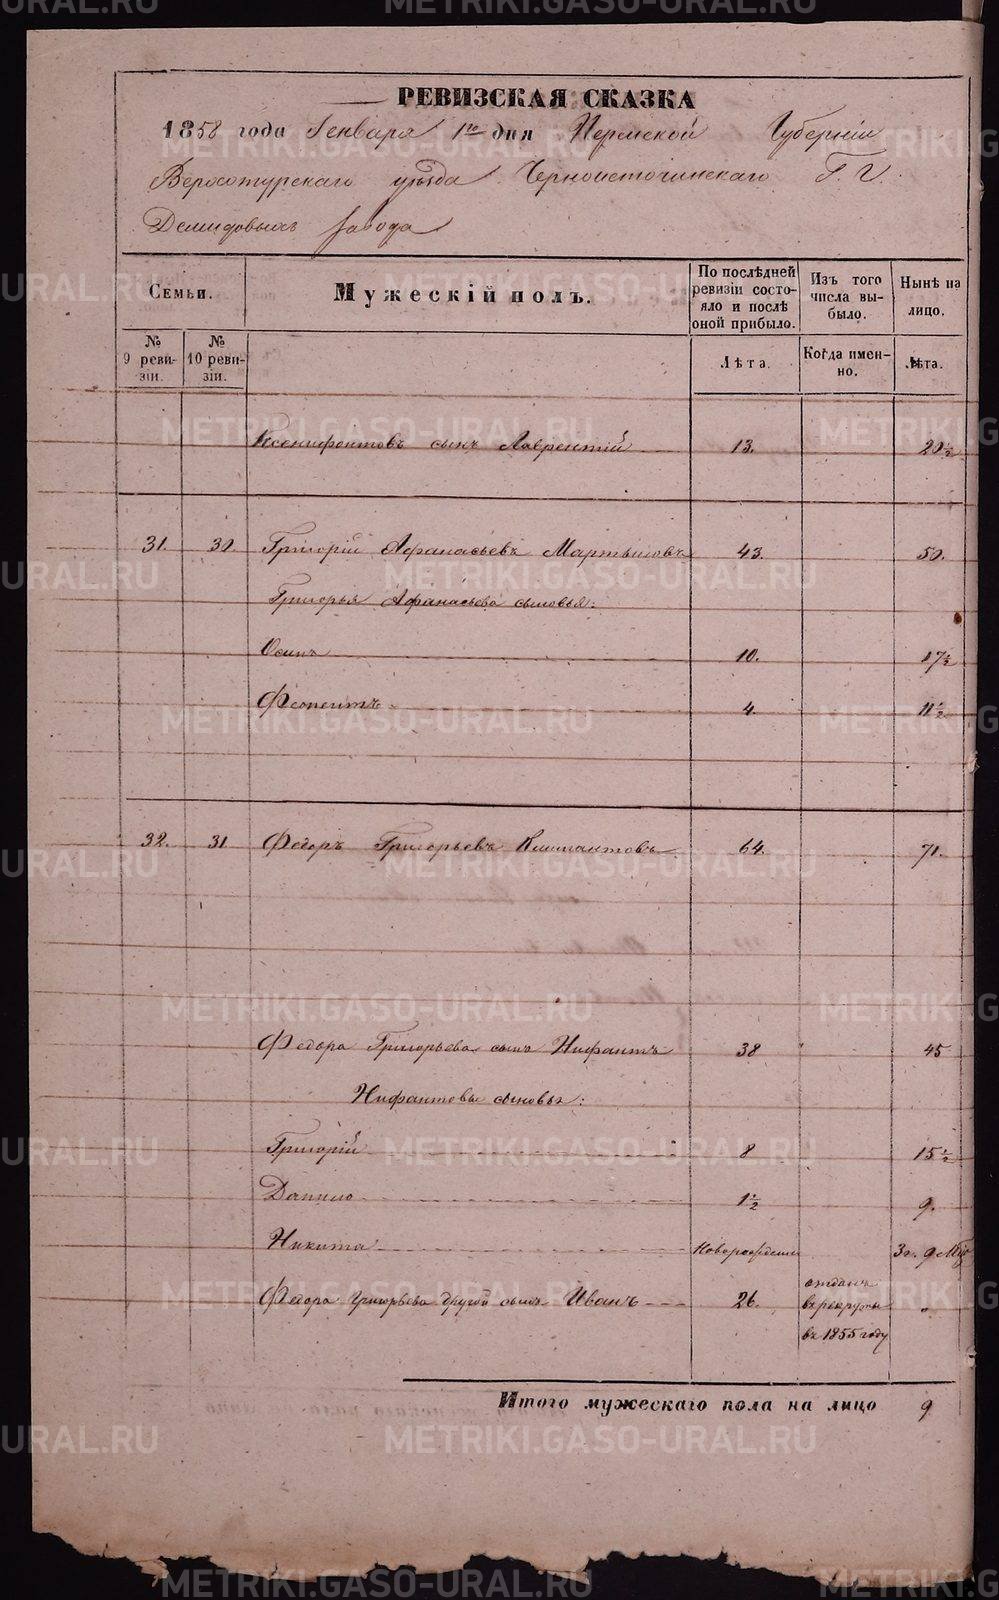 РЕВИЗСКАЯ СКАЗКА
1858 года Генваря 1го дня Пермской Губерніи
Верхотурскаго уѣзда Черноисточинскаго Г. Г.
Демидовыхъ завода
Семьи.
№ 9 ревизіи.
№ 10 ревизіи.
Мужескій полъ.
По послѣдней ревизіи состояло и послѣ оной прибыло.
Изъ того числа выбыло.
Нынѣ на лицо.
Лѣта.
Когда именно.
Лѣта.
Ксенифонтовъ сынъ Лаврентій 13. 20½
31. 30 Григорій Афанасьевъ Мартьяновъ 43. 50.
Григорья Афанасьева сыновья:
Осипъ 10. 17½
Феопентъ 4. 11½
32. 31 Федоръ Григорьевъ 64. 71.
Федора Григорьева сынъ Нифантъ 38 45
Нифантовы сыновья:
Григорій 8 15½
Данило 1½ 9.
Никита Новорожденъ 3г. 9 Мѣс
Федора Григорьева другой сынъ Иванъ 26. отданъ в рекруты въ 1855 году
Итого мужескаго пола на лицо 9
METRIKI.GASO-URAL.RU